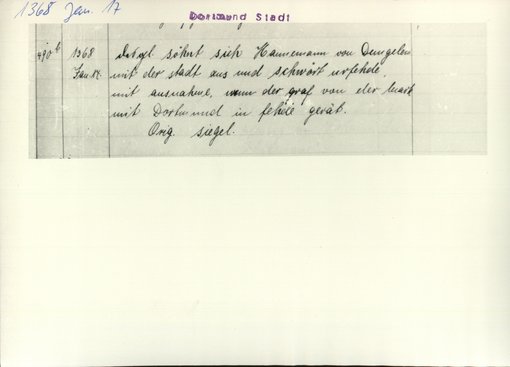 1368 Jan. 17
Dortmund Stadt
490b 1368 Detgl söhnt sich Hannemann von Dungelen
Jan. 17. mit der stadt aus und schwört urfehde,
mit ausnahme, wenn der graf von der mark
mit Dortmund in fehde gerät.
Orig. siegel.